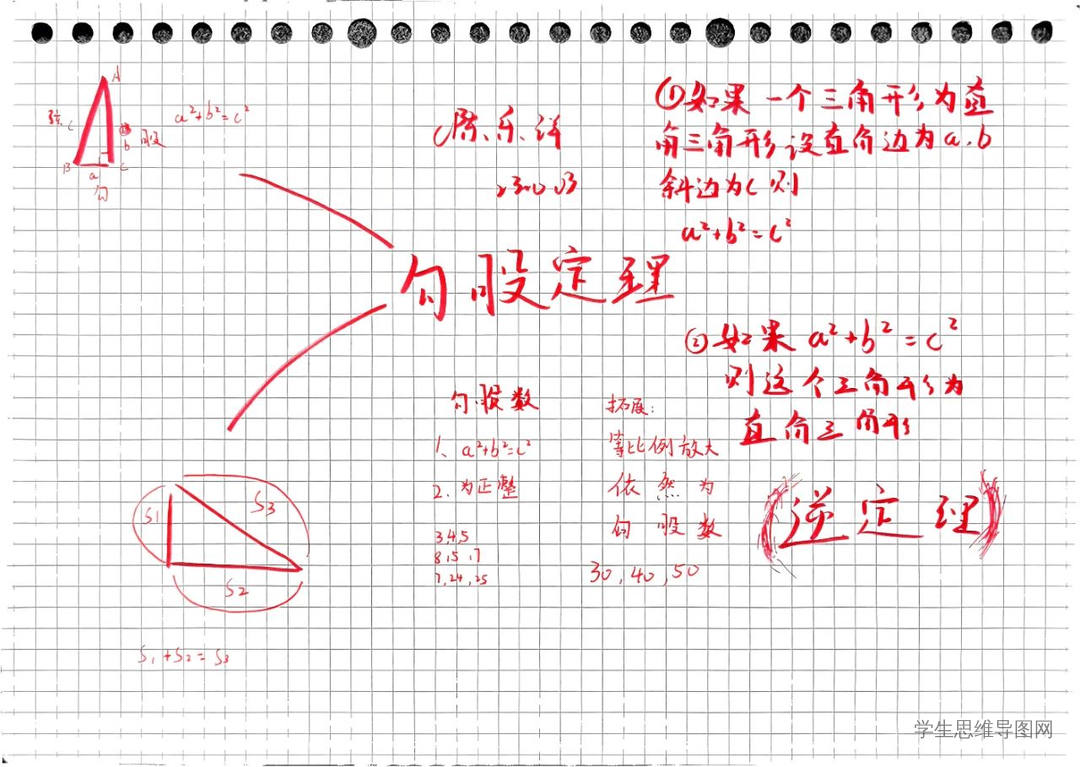 A
弦 c
b 股
B a C
勾
a²+b²=c²
陈乐洋
勾股定理
①如果一个三角形为直
角三角形设直角边为a.b
斜边为c则
a²+b²=c²
②如果 a²+b²=c²
则这个三角形为
直角三角形
(逆定理)
勾股数
1、a²+b²=c²
2、为正整
3,4,5
8,15,17
7,24,25
拓展:
等比例放大
依然为
勾股数
30,40,50
S1
S3
S2
S₁+S₂=S₃
学生思维导图网